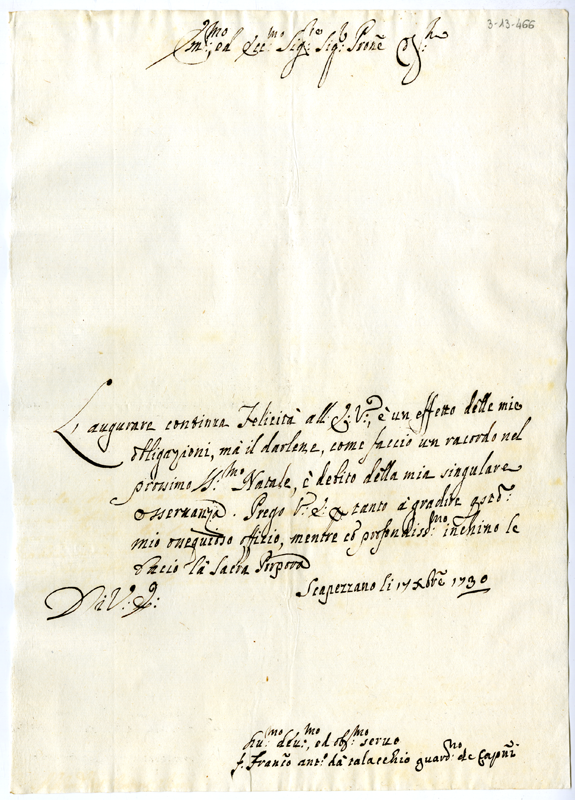 3-13-466
Em:mo, ed Ecc:mo Sig:re Sig:r Prone
L'augurare continua Felicità all' E: V:a, è un effetto delle mie
obligazioni, mà il darlene, come faccio un racordo nel
prossimo SS:mo Natale, è debito della mia singulare
osseruanza. Prego V:a E:a tanto à gradire q.sto:
mio ossequioso offizio, mentre cō profondiss:mo inchino le
bacio la Sacra Porpora
Di V: E:
Scapezzano li 17 Xbrē 1730
hu:mo deu:mo, ed obl:mo seruo
f. Franco ant:o dà talacchio guard:no de Capñi